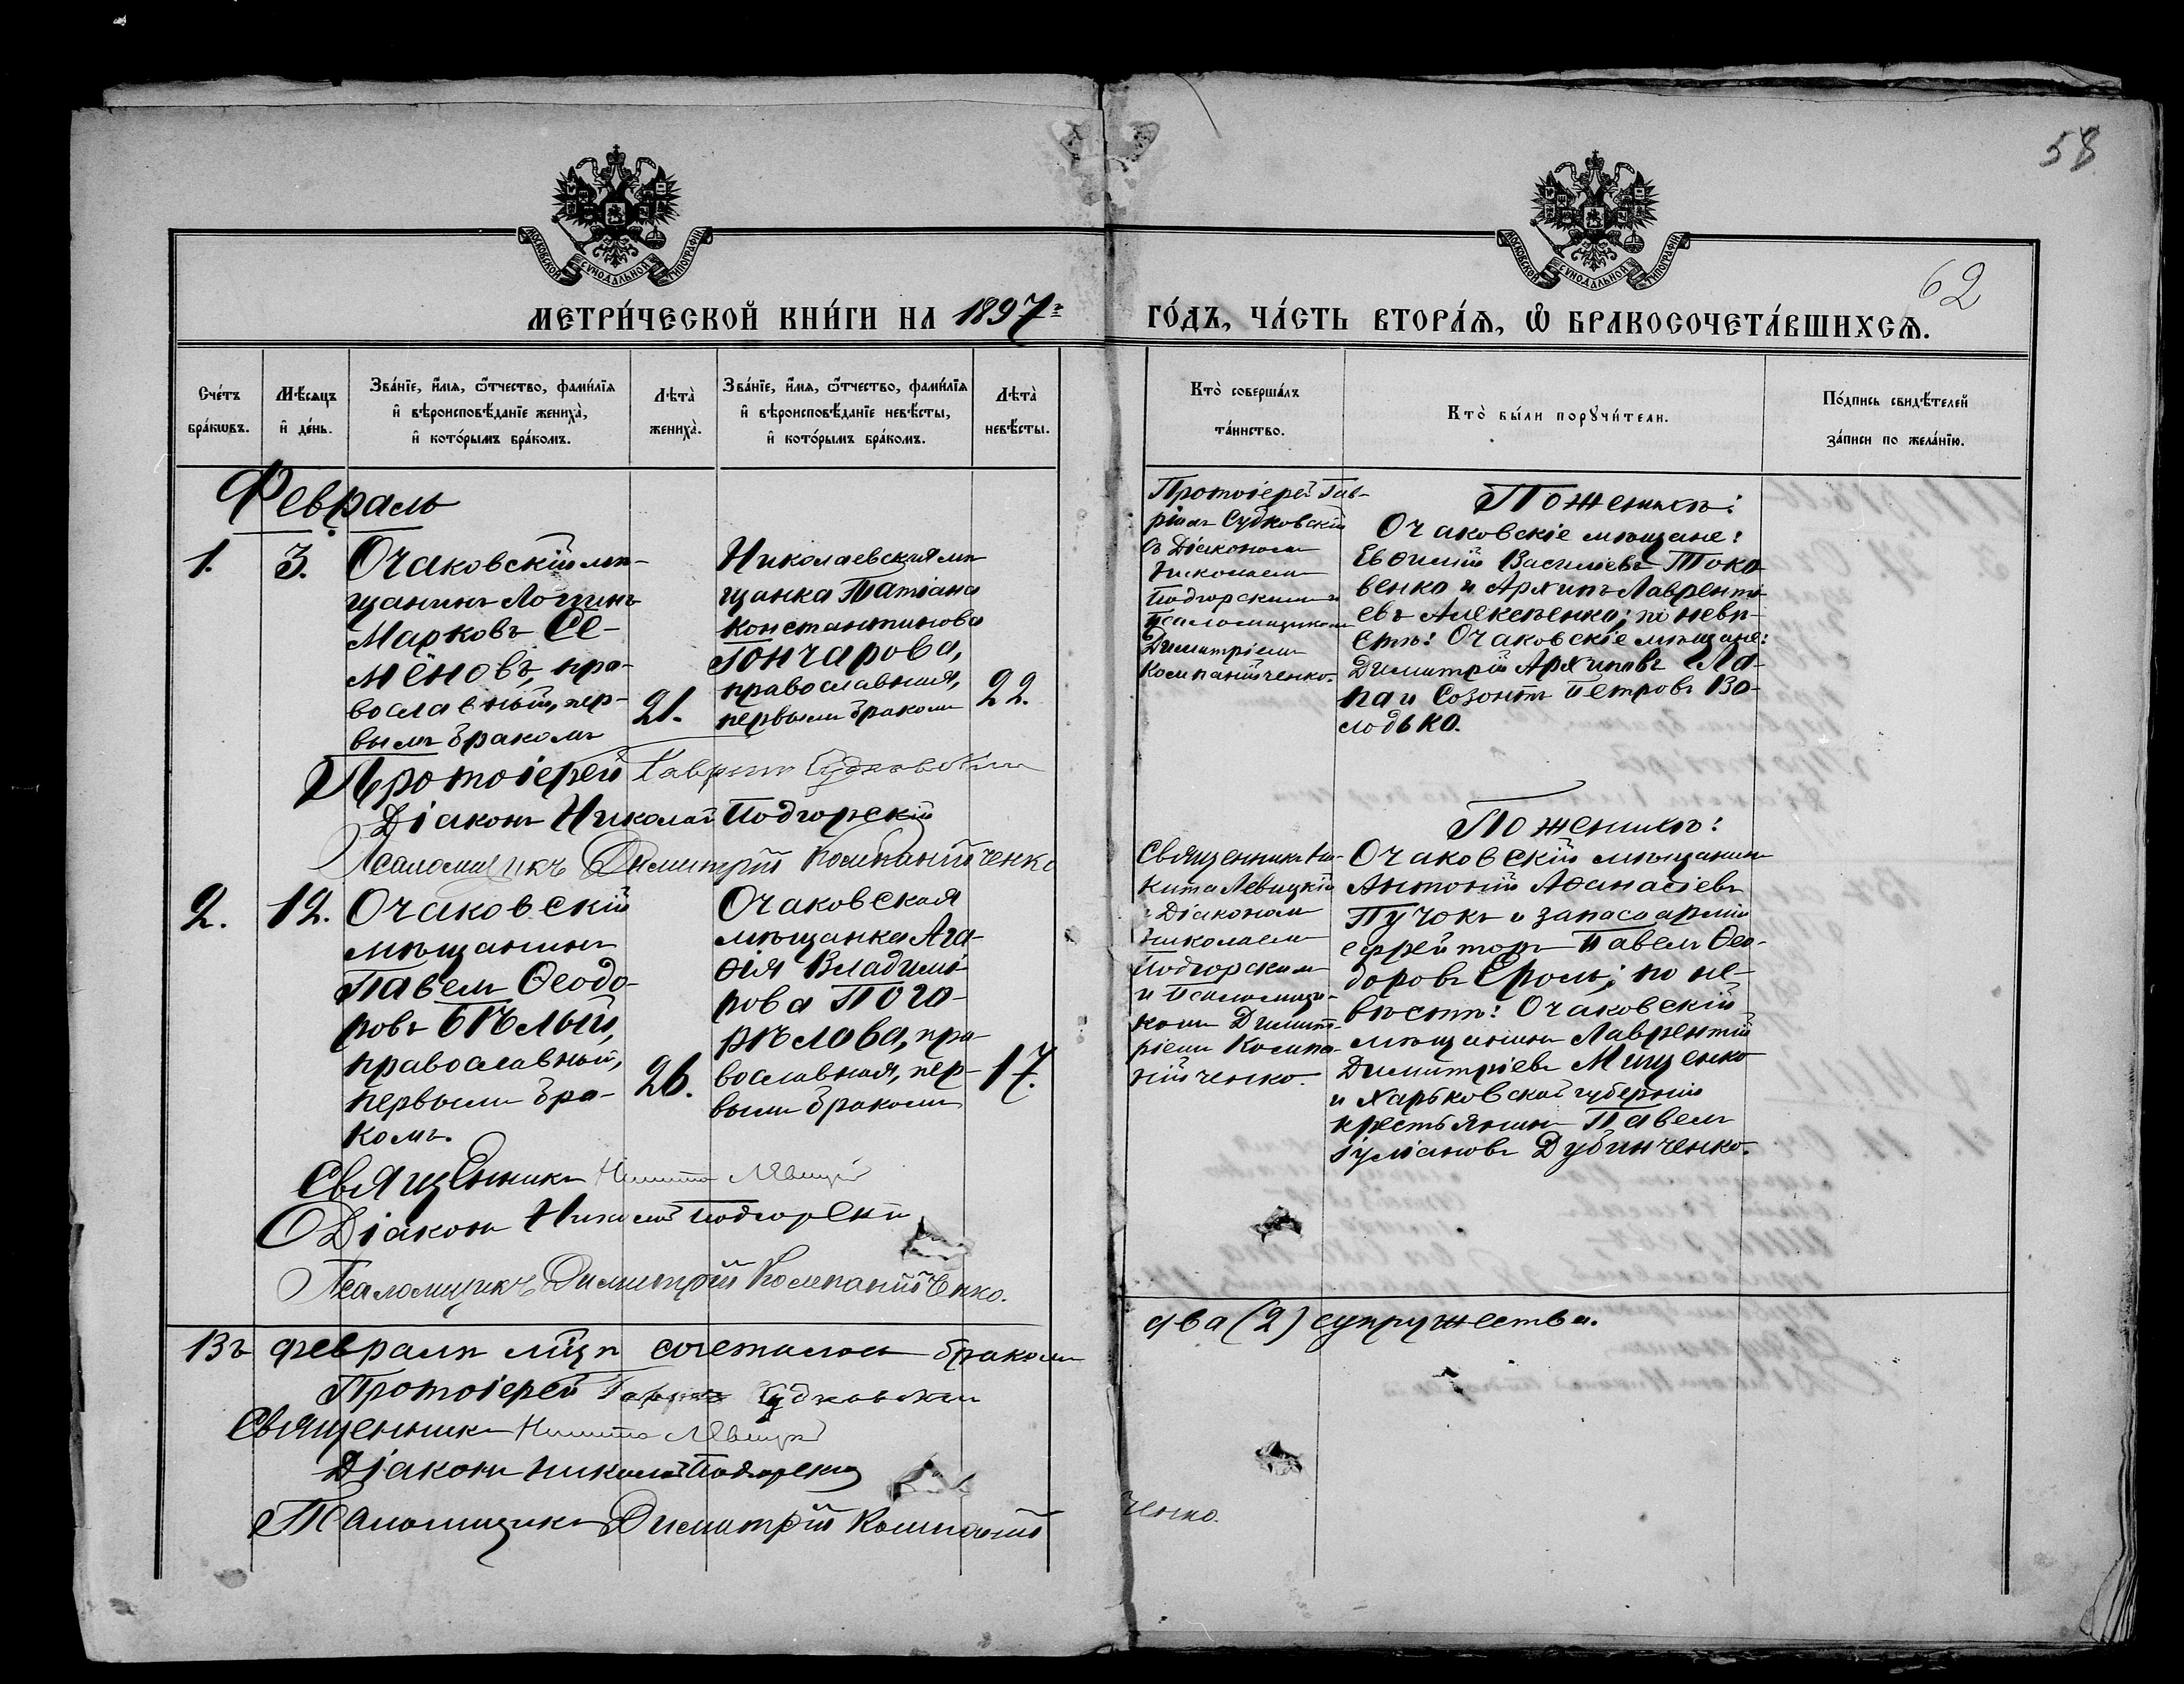 58
62
МОСКОВСКОЙ СѴНОДАЛЬНОЙ ТИПОГРАФІИ
МОСКОВСКОЙ СѴНОДАЛЬНОЙ ТИПОГРАФІИ
МЕТРИ́ЧЕСКОЙ КНИ́ГИ НА 1897 г.
ГО́ДЪ, ЧА́СТЬ ВТОРА́Я, Ѡ҆ БРАКОСОЧЕТА́ВШИХСѦ.
Сче́тъ
бра́кѡвъ.
Мѣ́сяцъ
и҆ де́нь.
Зва́нїе, и҆́мѧ, ѻ҆́тчество, фами́лїѧ
и҆ вѣроисповѣ́данїе жениха̀,
и҆ кото́рымъ бра́комъ.
Лѣта̀
жениха̀.
Зва́нїе, и҆́мѧ, ѻ҆́тчество, фами́лїѧ
и҆ вѣроисповѣ́данїе невѣ́сты,
и҆ кото́рымъ бра́комъ.
Лѣта̀
невѣ́сты.
Кто̀ соверша́лъ
та́инство.
Кто̀ бы́ли порꙋчи́тели.
По́дпись свидѣ́телей
за́писи по жела́нїю.
Февраль
1.
3.
Очаковскій мѣ-
щанинъ Логинъ
Марковъ Се-
мёновъ, пра-
вославный, пер-
вымъ бракомъ
21.
Николаевская мѣ-
щанка Татіана
Константинова
Гончарова,
православная,
первымъ бракомъ
22.
Протоіерей Гав-
ріилъ Судковскій
съ Діакономъ
Николаемъ
Подгорскимъ и
Псаломщикомъ
Димитріемъ
Компанійченко.
По женихѣ:
Очаковскіе мѣщане:
Евѳимій Васильевъ Тока
венко и Архипъ Лавренті
евъ Алексѣенко; по невѣ-
стѣ: Очаковскіе мѣщане:
Димитрій Архиповъ Ла-
па и Созонтъ Петровъ Во-
лодько.
Протоіерей Гавріилъ Судковскій
Діаконъ Николай Подгорскій
Псаломщикъ Димитрій Компанійченко
2.
12.
Очаковскій
мѣщанинъ
Павелъ Ѳеодо-
ровъ Бѣлый,
православный,
первымъ бра-
комъ.
26.
Очаковская
мѣщанка Ага-
ѳія Владимі-
рова Пого-
рѣлова, пра-
вославная, пер-
вымъ бракомъ
17.
Священникъ Ни-
кита Левицкій
съ Діакономъ
Николаемъ
Подгорскимъ
и Псаломщи-
комъ Димит-
ріемъ Компа-
нійченко.
По женихѣ:
Очаковскій мѣщанинъ
Антоній Аѳанасіевъ
Пучокъ и запаса арміи
ефрейторъ Павелъ Ѳео-
доровъ Ероль; по не-
вѣстѣ: Очаковскій
мѣщанинъ Лаврентій
Димитріевъ Мищенко
и Харьковской губерніи
крестьянинъ Павелъ
Іуліановъ Дубинченко.
Священникъ Никита Левицкій
Діаконъ Николай Подгорскій
Псаломщикъ Димитрій Компанійченко.
Въ февралѣ м‍‍‍‍‍ц‍ѣ сочеталось бракомъ
два (2) супружества.
Протоіерей Гавріилъ Судковскій
Священникъ Никита Левицкій
Діаконъ Николай Подгорскій
Псаломщикъ Димитрій Компаній
ченко.